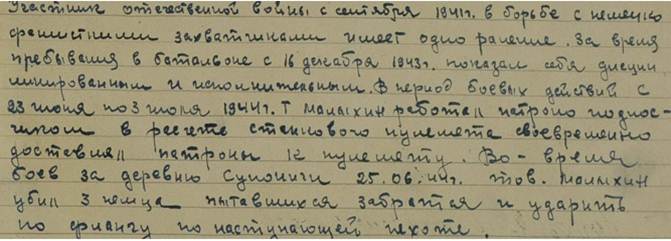 Участник отечественной войны с сентября 1941г. в борьбе с немецко
фашистскими захватчиками имеет одно ранение. За время
пребывания в батальоне с 16 декабря 1943г. показал себя дисцип
линированным и исполнительным. В период боевых действий с
23 июня по 3 июля 1944г. т Малыхин работал патроно поднос-
чиком в расчете станкового пулемета своевременно
доставлял патроны к пулемету. Во-время
боев за деревню 25.06.44г. тов. Малыхин
убил 3 немца пытавшихся забратся и ударить
по флангу по наступающей пехоте.